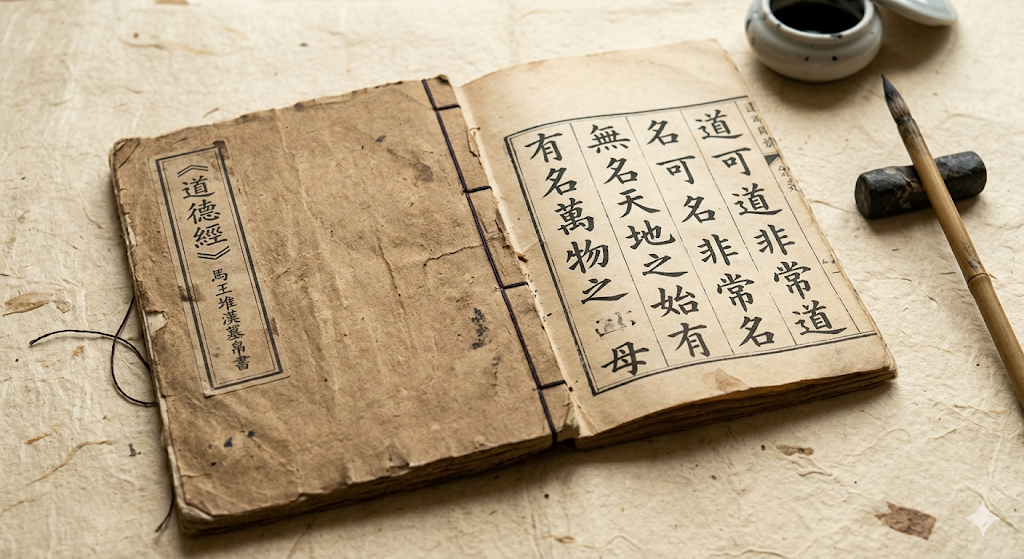 《道德經》
馬王堆漢墓帛書
道可道非常道
名可名非常名
無名天地之始有
有名萬物之母